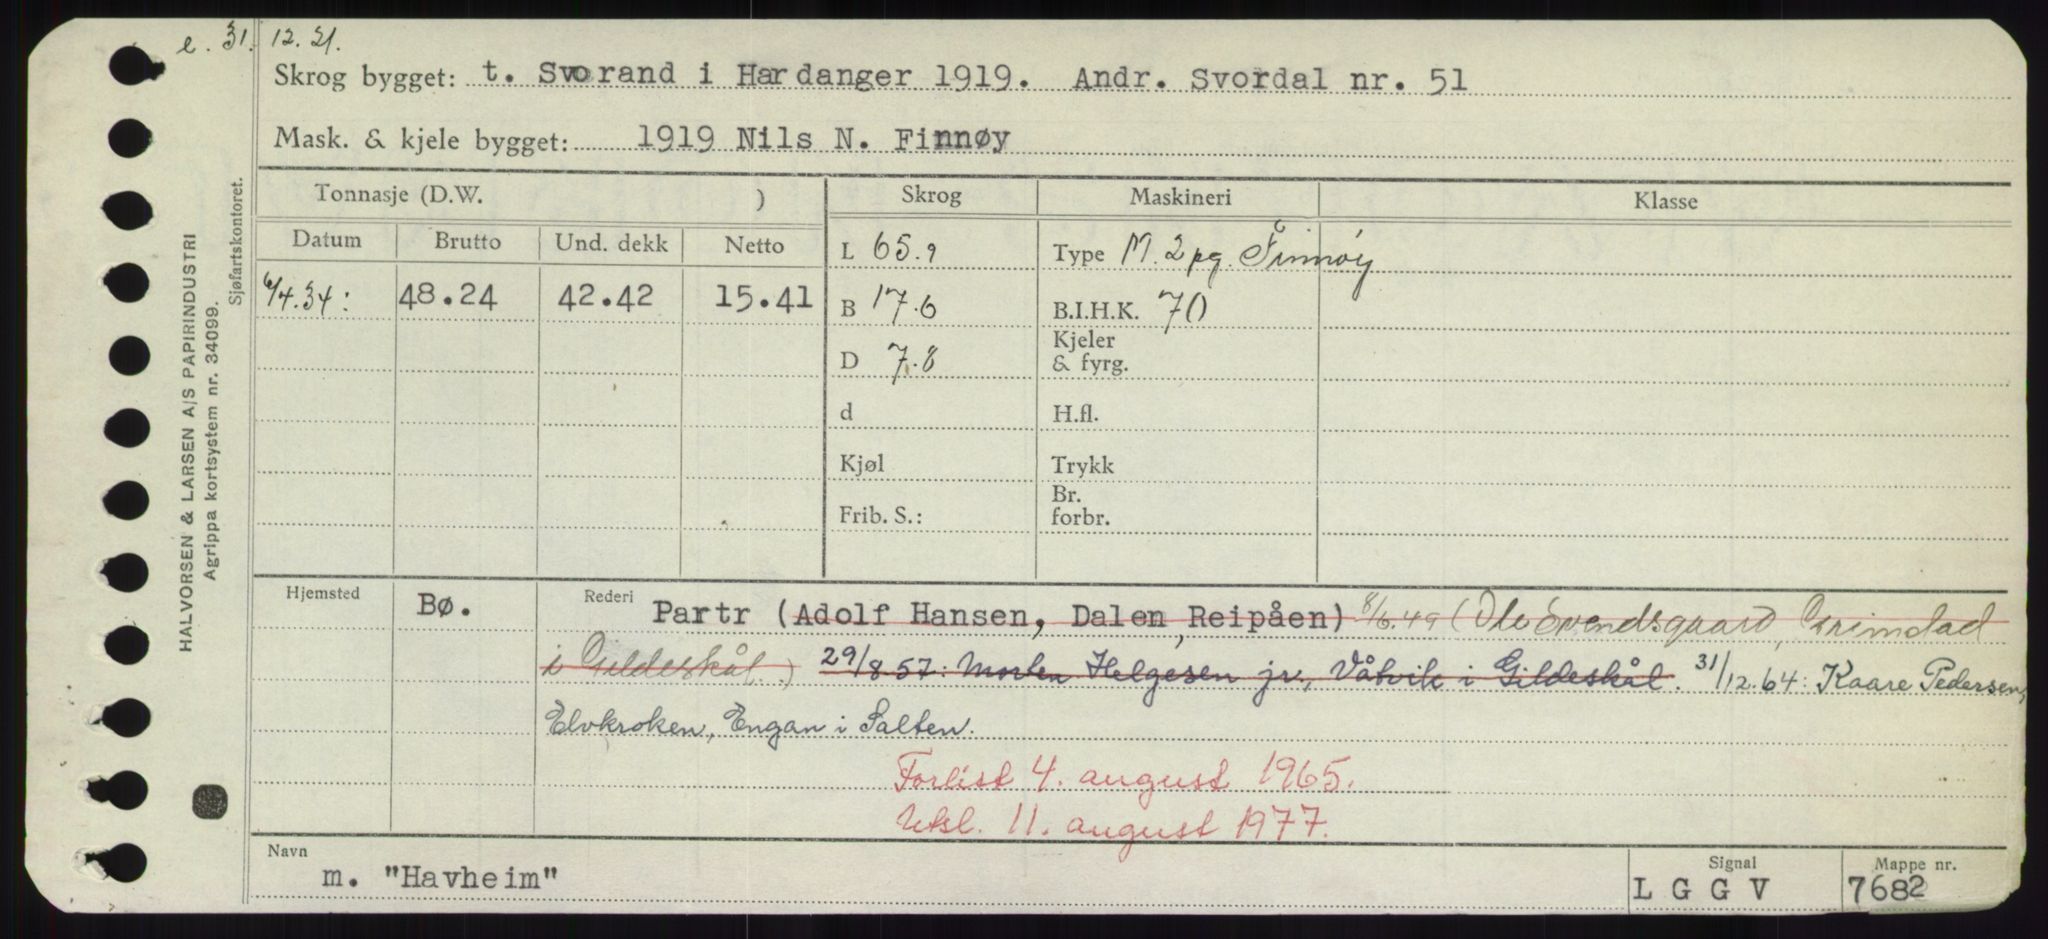 e. 31. 12. 21.
Skrog bygget: t. Svorand i Hardanger 1919. Andr. Svordal nr. 51
Mask. & kjele bygget: 1919 Nils N. Finnøy
HALVORSEN & LARSEN A/S PAPIRINDUSTRI
Agrippa kortsystem nr. 34099.
Sjøfartskontoret.
Tonnasje (D.W. ) Skrog Maskineri Klasse
Datum Brutto Und. dekk Netto
L 65.9 Type M. 2 pg. Finnøy
6/4.34: 48.24 42.42 15.41
B 17.6 B.I.H.K. 70
D 7.8 Kjeler & fyrg.
d H.fl.
Kjøl Trykk
Frib. S.: Br. forbr.
Hjemsted Bø. Rederi Partr (Adolf Hansen, Dalen, Reipåen) 8/6.49 (Ole Svendsgaard, Grimstad
i Gildeskål.) 29/8.57: Morten Helgesen jr., Våtvik i Gildeskål. 31/12.64: Kaare Pedersen,
Elvkroken, Engan i Salten.
Forlist 4. august 1965.
Utsl. 11. august 1977.
Navn m. "Havheim" Signal L G G V Mappe nr. 7682